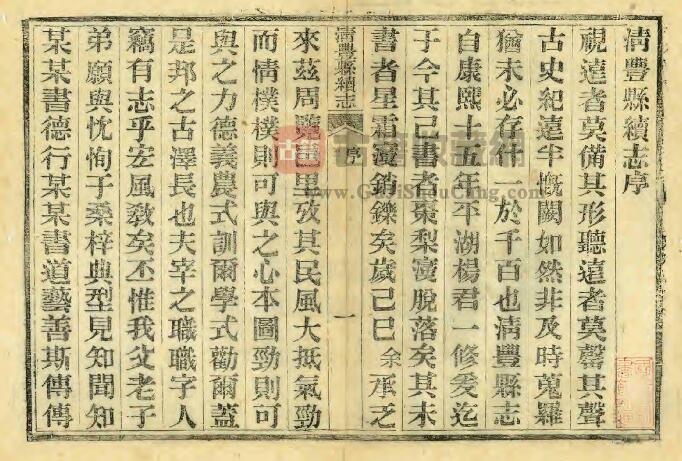 清豐縣續志序
視遠者莫備其形聽遠者莫罄其聲
古史紀遠半慨闕如然非及時蒐羅
猶未必存什一於千百也清豐縣志
自康熙十五年平湖楊君一修爰迄
于今其已書者棗梨濅脫落矣其未
書者星霜濅銷鑠矣歲己巳余承乏
清豐縣續志
序
一
來茲周覽邑里攷其民風大抵氣勁
而情樸樸則可與之心本圖勁則可
與之力德義農式訓爾學式勸爾蓋
是邦之古澤長也夫宰之職職字人
竊有志乎宏風敎矣丕惟我父老子
弟願與忱恂于桑梓典型見知聞知
某某書德行某某書道藝善斯傳傳
www.GuJiShuCang.com